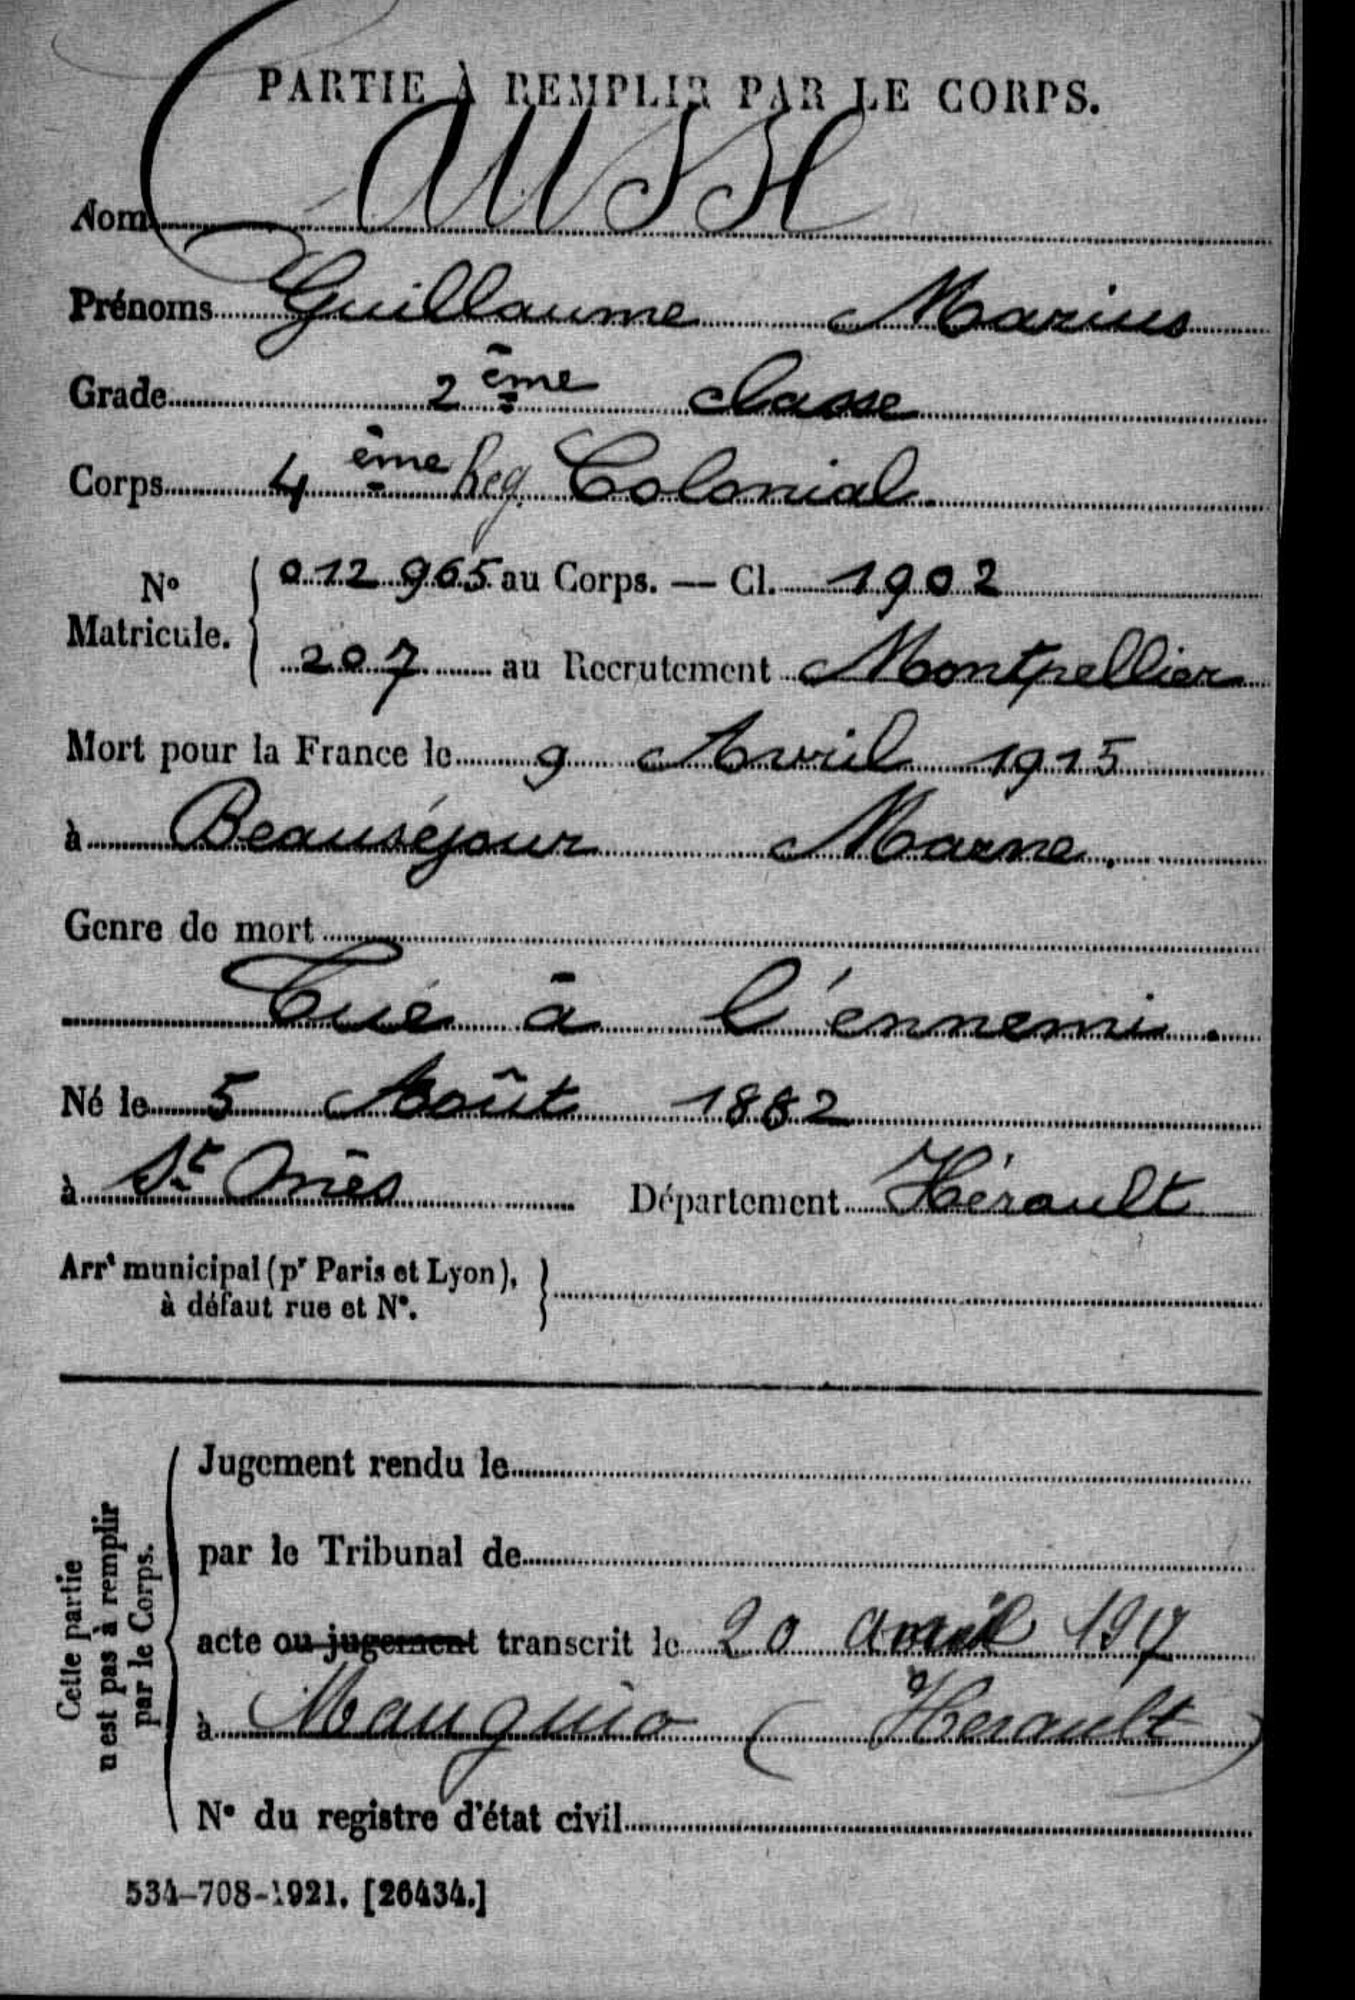 PARTIE À REMPLIR PAR LE CORPS.
Nom CAUSSE
Prénoms Guillaume Marius
Grade 2ème classe
Corps 4ème Reg. Colonial.
N° Matricule. { 012 965 au Corps. — Cl. 1902
207 au Recrutement Montpellier
Mort pour la France le 9 Avril 1915
à Beauséjour Marne.
Genre de mort
Tué à l'ennemi.
Né le 5 Août 1882
à St Département Hérault
Arrt municipal (pr Paris et Lyon), }
à défaut rue et N°.
Cette partie
n'est pas à remplir
par le Corps.
Jugement rendu le
par le Tribunal de
acte ou jugement transcrit le 20 avril 1917
à Mauguio (Hérault)
N° du registre d'état civil
534-708-1921. [26434.]